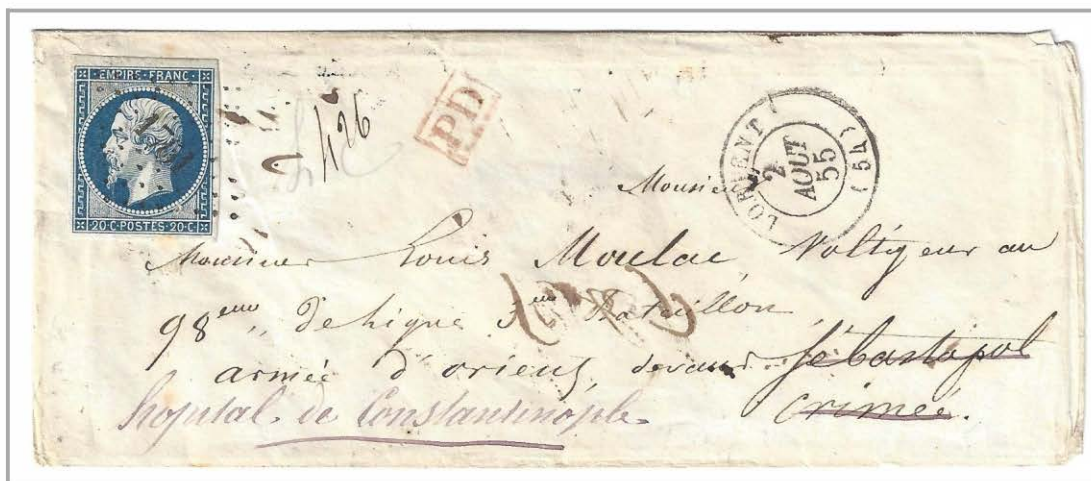 EMPIRE · FRANC ·
20 · C · POSTES · 20 · C
426
PD
LORIENT
2
AOUT
55
(54)
Monsieur
Monsieur Louis Moulac, Voltigeur au
98eme de ligne Bataillon,
armée d'orient, devant Sébastopol
Crimée.
hopital de Constantinople